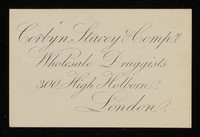 Corbyn, Stacey & Comp.y
Wholesale Druggists
300, High Holborn.
London.